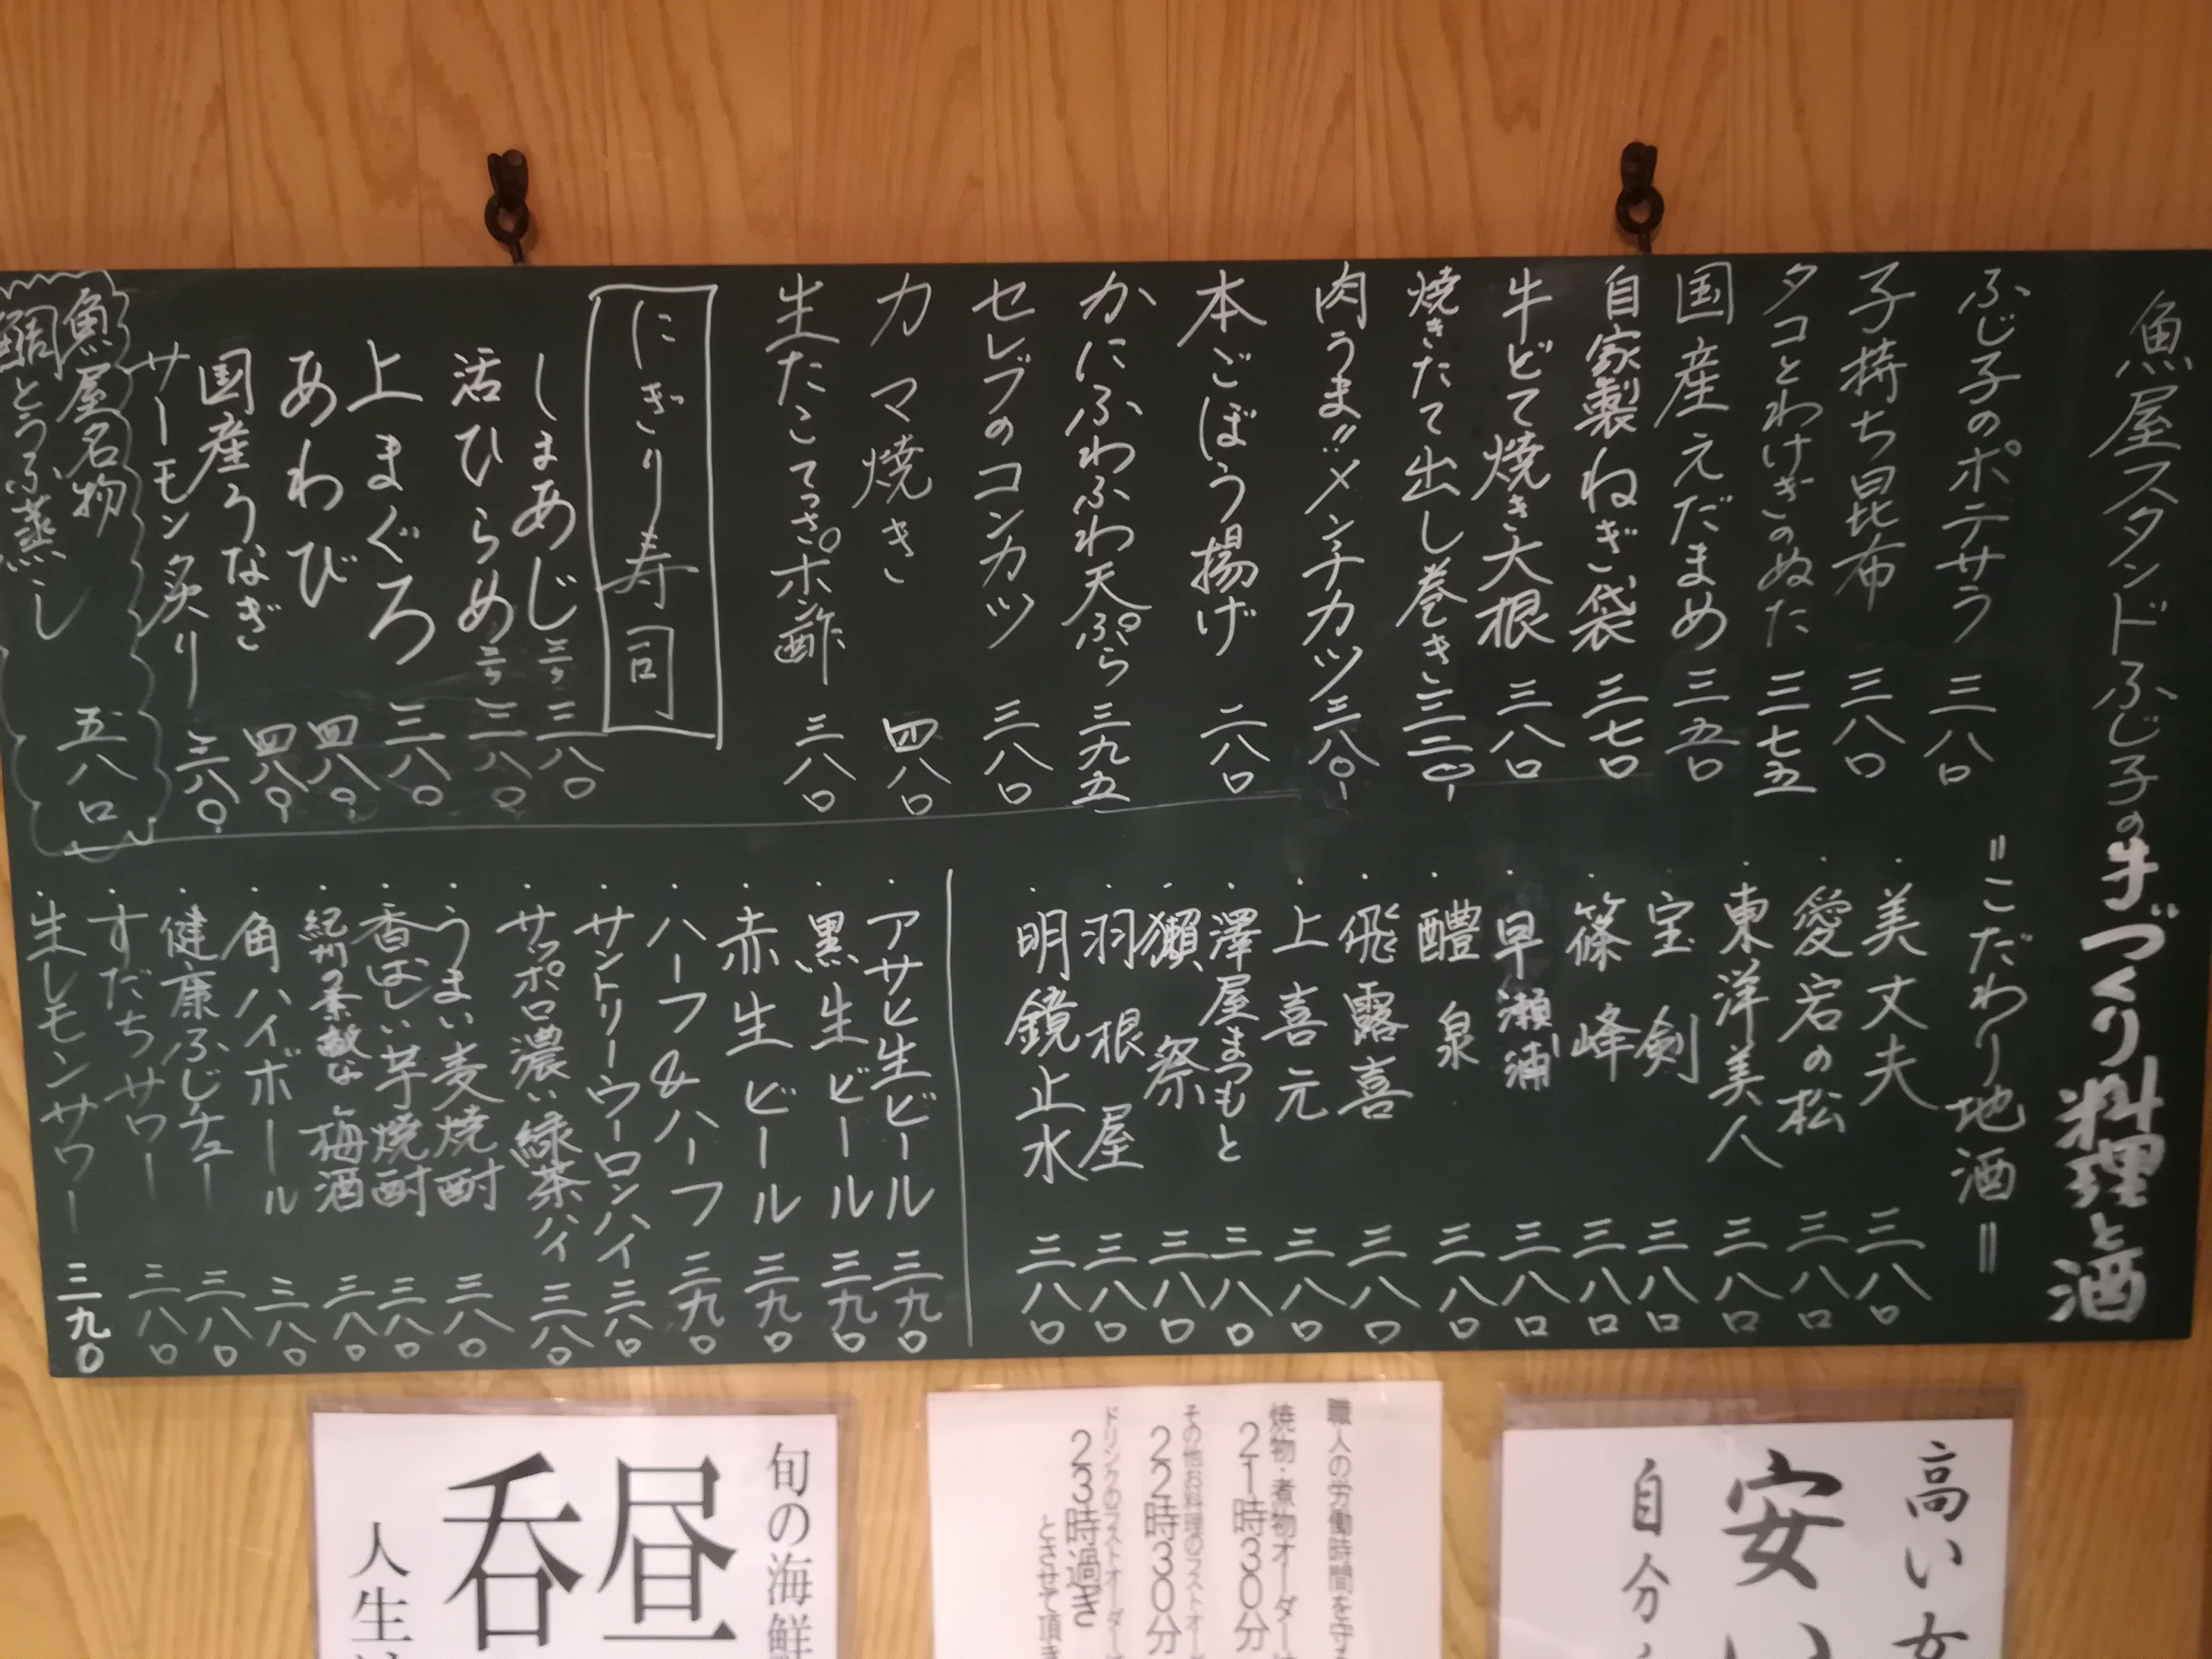 魚屋スタンドふじ子の手づくり料理と酒
ふじ子のポテサラ 三八〇
子持ち昆布 三八〇
タコとわけぎのぬた 三七五
国産えだまめ 三五〇
自家製ねぎ袋 三七〇
牛どて焼き大根 三八〇
焼きたて出し巻き 三二〇
肉うま!!メンチカツ 三八〇
本ごぼう揚げ 二八〇
かにふわふわ天ぷら 三九五
セレブのコンカツ 三八〇
カマ焼き 四八〇
生たこてっさポン酢 三八〇
にぎり寿司
しまあじ 三八〇
活ひらめ 三八〇
上まぐろ 三八〇
あわび 四八〇
国産うなぎ 四八〇
サーモン炙り 三八〇
魚屋名物
鯛とうふ蒸し 五八〇
=こだわり地酒=
・美丈夫 三八〇
・愛宕の松 三八〇
・東洋美人 三八〇
・宝剣 三八〇
・篠峰 三八〇
・早瀬浦 三八〇
・醴泉 三八〇
・飛露喜 三八〇
・上喜元 三八〇
・澤屋まつもと 三八〇
・獺祭 三八〇
・羽根屋 三八〇
・明鏡止水 三八〇
・アサヒ生ビール 三九〇
・黒生ビール 三九〇
・赤生ビール 三九〇
・ハーフ&ハーフ 三九〇
・サントリーウーロンハイ 三八〇
・サッポロ濃い緑茶ハイ 三八〇
・うまい麦焼酎 三八〇
・香ばしい芋焼酎 三八〇
・紀州の素敵な梅酒 三八〇
・角ハイボール 三八〇
・健康ふじチュー 三八〇
・すだちサワー 三八〇
・生レモンサワー 三九〇
高い女
安い
自分
職人の労働時間を守る
焼物・煮物オーダーは
21時30分
その他お料理のラストオー
22時30分
ドリンクのラストオーダー
23時過ぎ
とさせて頂き
旬の海鮮
昼
呑
人生